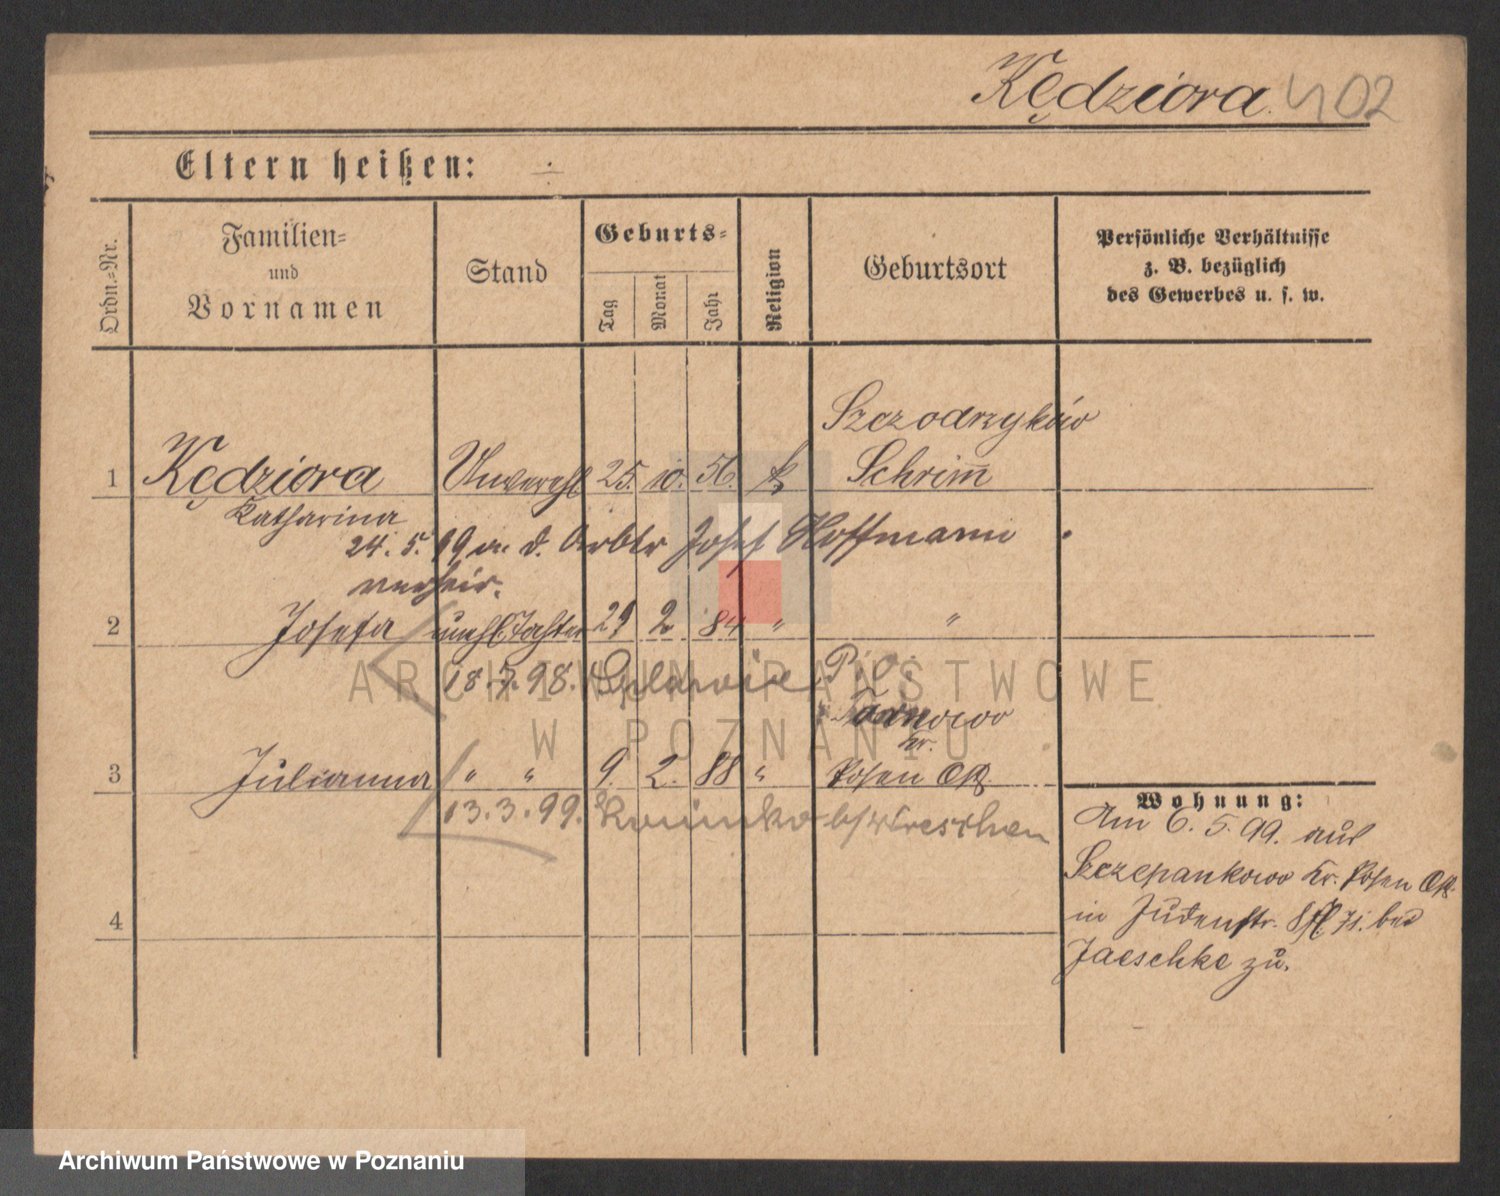 Kędziora 402
Eltern heißen: ÷
Ordn.-Nr.
Familien-
und
Vornamen
Stand
Geburts-
Tag
Monat
Jahr
Religion
Geburtsort
Persönliche Verhältnisse
z. B. bezüglich
des Gewerbes u. s. w.
Szczodrzyków
1 Kędziora Unverehl 25. 10. 56. k Schrim̅
Katharina
24. 5. 99 a. d. Arbtr Josef Hoffmann
verheir.
2 Josefa unehl. Tochter 29 2 84 " "
18. 7. 98.
Tarnowo
Kr.
3 Julianna " " 9. 2. 88 " Posen OP.
13. 3. 99. b/Wreschen
4
Wohnung:
Am 6. 5. 99. aus
Szczepankowo Kr. Posen OP.
in Judenstr. 8 bei
Jaeschke zu.
ARCHIWUM PAŃSTWOWE
W POZNANIU
Archiwum Państwowe w Poznaniu